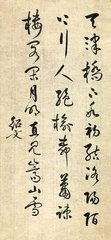 天津橋下冰初結洛陽陌
上行人絕榆柳蕭疎
樓閣閑月明直見嵩山雪